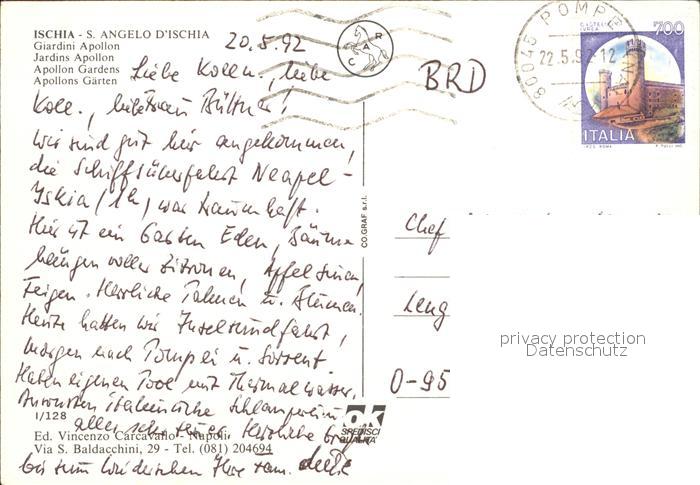 ISCHIA - S. ANGELO D'ISCHIA
Giardini Apollon
Jardins Apollon
Apollon Gardens
Apollons Gärten
20.5.92
Liebe Kolln., liebe
Koll., liebe Frau
wir sind gut hier angekommen,
die Schiffsüberfahrt Neapel -
Iskia (1h) war traumhaft.
Hier ist ein Garten Eden, Bäume
hängen voller Zitronen, Apfelsinen,
Feigen. Herrliche Palmen u. Blumen.
Heute hatten wir Inselrundfahrt,
morgen nach Pompei u. Sorrent.
Haben eigenen Pool mit Thermalwasser,
Ansonsten italienische
alles sehr teuer. Herzliche
bis zum Wiedersehen Ihre
1/128
Ed. Vincenzo Carcavallo - Napoli
Via S. Baldacchini, 29 - Tel. (081) 204694
CO.GRAF s.r.l.
OK
SPEDISCI
QUALITÀ
C A R
BRD
80045 POMPEI
22.5.9 -12
CASTELLO
IVREA
700
ITALIA
Chef
Leng
O-95
privacy protection
Datenschutz